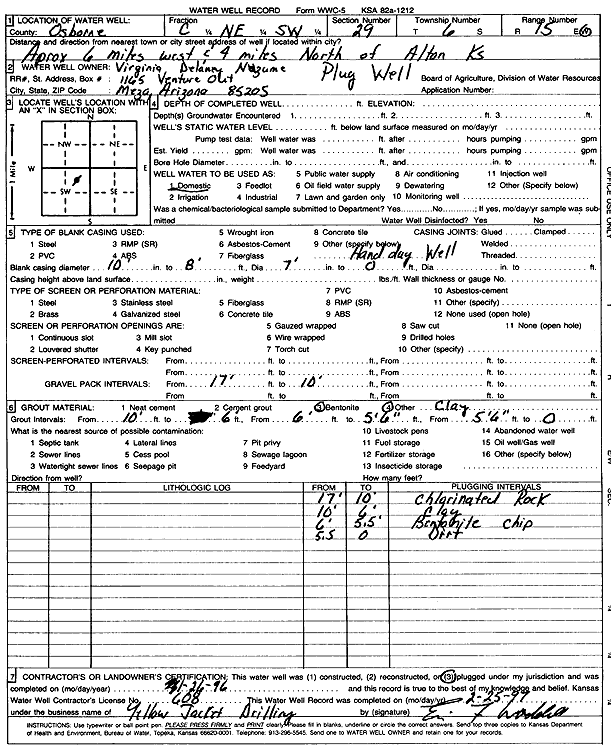 WATER WELL RECORD Form WWC-5 KSA 82a-1212
1 LOCATION OF WATER WELL: Fraction Section Number Township Number Range Number
County: Osborne C ¼ NE ¼ SW ¼ 29 T 6 S R 15 E(W)
Distance and direction from nearest town or city street address of well if located within city?
Aprox 6 miles west & 4 miles North of Alton Ks
2 WATER WELL OWNER: Virginia Delanny Nozume Plug Well
RR#, St. Address, Box # : 1165 Venture Out Board of Agriculture, Division of Water Resources
City, State, ZIP Code : Meza, Arizona 85205 Application Number:
3 LOCATE WELL'S LOCATION WITH AN "X" IN SECTION BOX:
N
NW NE
W E
SW SE
S
1 Mile
4 DEPTH OF COMPLETED WELL ft. ELEVATION:
Depth(s) Groundwater Encountered 1. ft. 2. ft. 3. ft.
WELL'S STATIC WATER LEVEL ft. below land surface measured on mo/day/yr
Pump test data: Well water was ft. after hours pumping gpm
Est. Yield gpm: Well water was ft. after hours pumping gpm
Bore Hole Diameter in. to ft., and in. to ft.
WELL WATER TO BE USED AS: 5 Public water supply 8 Air conditioning 11 Injection well
1 Domestic 3 Feedlot 6 Oil field water supply 9 Dewatering 12 Other (Specify below)
2 Irrigation 4 Industrial 7 Lawn and garden only 10 Monitoring well
Was a chemical/bacteriological sample submitted to Department? Yes No ; If yes, mo/day/yr sample was submitted Water Well Disinfected? Yes No
5 TYPE OF BLANK CASING USED: 5 Wrought iron 8 Concrete tile CASING JOINTS: Glued Clamped
1 Steel 3 RMP (SR) 6 Asbestos-Cement 9 Other (specify below) Welded
2 PVC 4 ABS 7 Fiberglass Hand dug Well Threaded
Blank casing diameter 10' in. to 8' ft., Dia 7' in. to 0 ft., Dia in. to ft.
Casing height above land surface in., weight lbs./ft. Wall thickness or gauge No.
TYPE OF SCREEN OR PERFORATION MATERIAL: 7 PVC 10 Asbestos-cement
1 Steel 3 Stainless steel 5 Fiberglass 8 RMP (SR) 11 Other (specify)
2 Brass 4 Galvanized steel 6 Concrete tile 9 ABS 12 None used (open hole)
SCREEN OR PERFORATION OPENINGS ARE: 5 Gauzed wrapped 8 Saw cut 11 None (open hole)
1 Continuous slot 3 Mill slot 6 Wire wrapped 9 Drilled holes
2 Louvered shutter 4 Key punched 7 Torch cut 10 Other (specify)
SCREEN-PERFORATED INTERVALS: From ft. to ft., From ft. to ft.
From ft. to ft., From ft. to ft.
GRAVEL PACK INTERVALS: From 17' ft. to 10' ft., From ft. to ft.
From ft. to ft., From ft. to ft.
6 GROUT MATERIAL: 1 Neat cement 2 Cement grout 3 Bentonite 4 Other Clay
Grout Intervals: From 10' ft. to 6' ft., From 6' ft. to 5'6" ft., From 5'6" ft. to 0 ft.
What is the nearest source of possible contamination: 10 Livestock pens 14 Abandoned water well
1 Septic tank 4 Lateral lines 7 Pit privy 11 Fuel storage 15 Oil well/Gas well
2 Sewer lines 5 Cess pool 8 Sewage lagoon 12 Fertilizer storage 16 Other (specify below)
3 Watertight sewer lines 6 Seepage pit 9 Feedyard 13 Insecticide storage
Direction from well? How many feet?
FROM TO LITHOLOGIC LOG FROM TO PLUGGING INTERVALS
17' 10' Chlorinated Rock
10' 6' Clay
6' 5.5' Bentonite chip
5.5 0 Dirt
7 CONTRACTOR'S OR LANDOWNER'S CERTIFICATION: This water well was (1) constructed, (2) reconstructed, or (3) plugged under my jurisdiction and was
completed on (mo/day/year) -26-96 and this record is true to the best of my knowledge and belief. Kansas
Water Well Contractor's License No. 608 This Water Well Record was completed on (mo/day/yr) 2-25-97
under the business name of Yellow Jacket Drilling by (signature)
INSTRUCTIONS: Use typewriter or ball point pen. PLEASE PRESS FIRMLY and PRINT clearly. Please fill in blanks, underline or circle the correct answers. Send top three copies to Kansas Department
of Health and Environment, Bureau of Water, Topeka, Kansas 66620-0001. Telephone: 913-296-5545. Send one to WATER WELL OWNER and retain one for your records.
OFFICE USE ONLY
T
R
E/W
SEC.